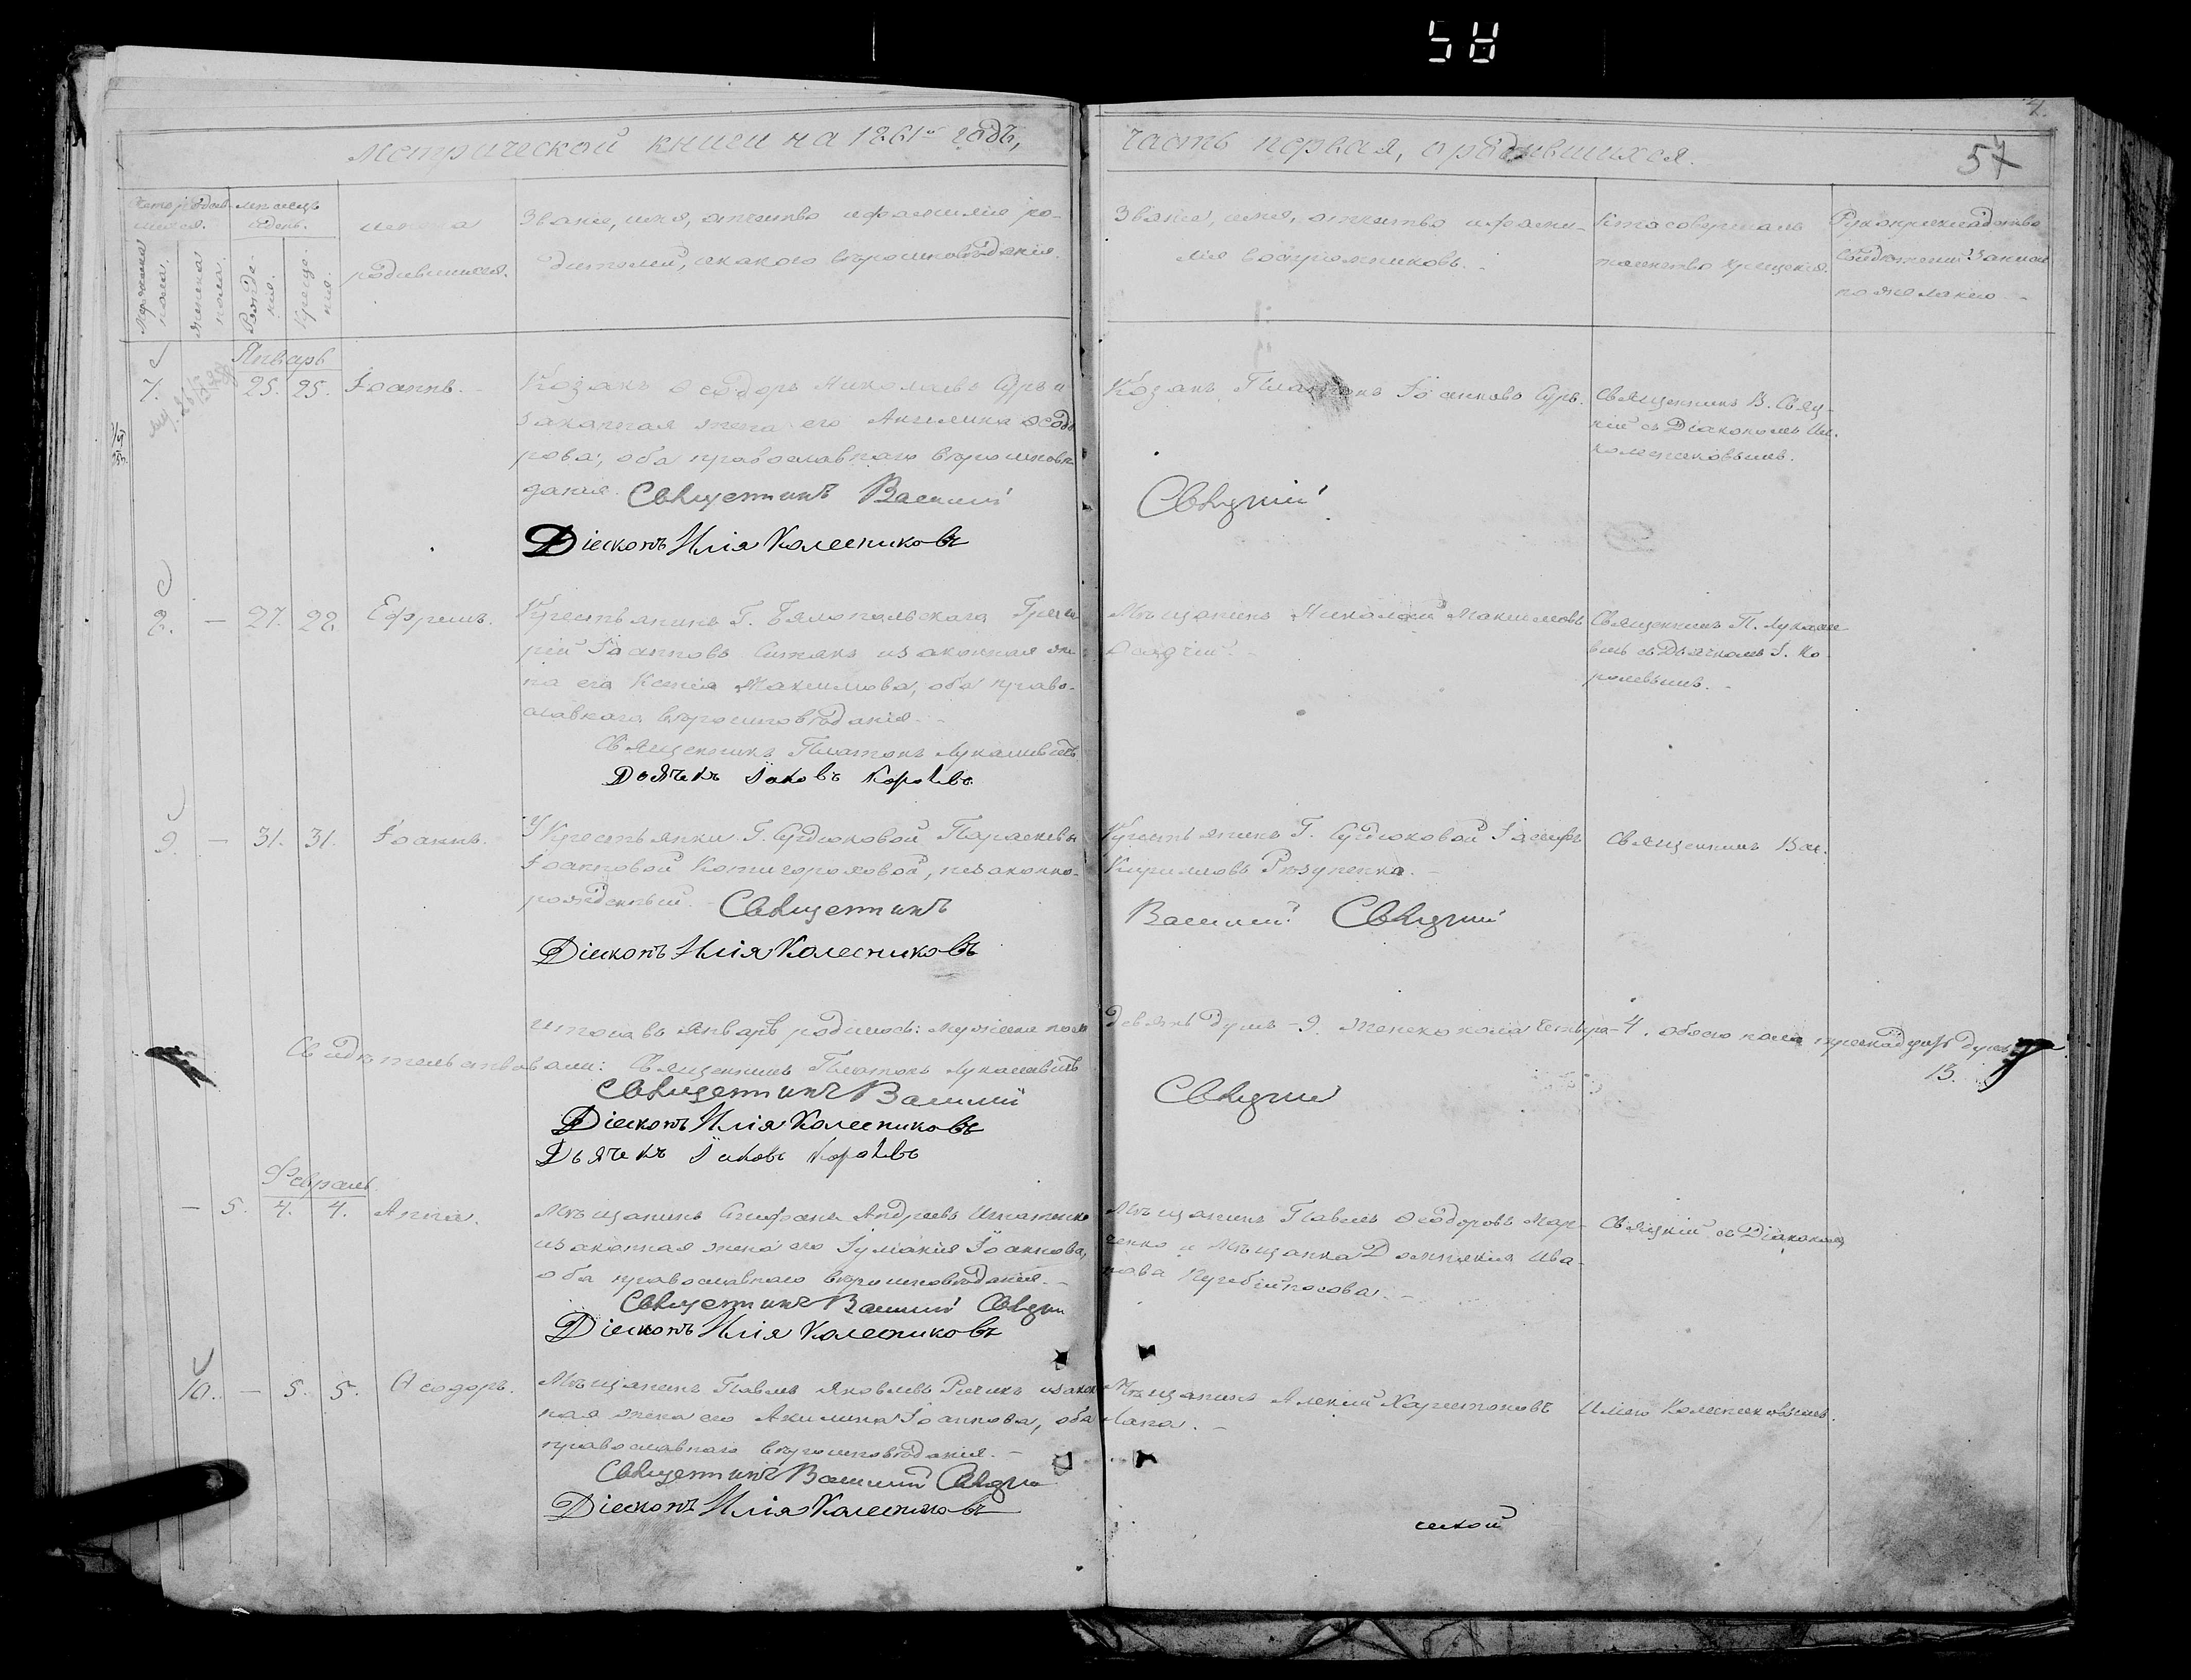 58
4.
57
Метрической книги на 1861й годъ,
часть первая, о родившихся.
Счетъ родив-
шихся.
Мѣсяцъ
и день.
Мужеска
пола.
Женска
пола.
Рожде-
нія.
Креще-
нія.
Имена
родившихся.
Званіе, имя, отчество и фамилія ро-
дителей, и какого вѣроисповѣданія.
Званіе, имя, отчество и фами-
лія воспріемниковъ.
Кто совершалъ
таинство крещенія.
Рукоприкладство
свидѣтелей записи
по желанію
Январь
7. 25. 25. Іоаннъ.
Козакъ Ѳеодоръ Николаевъ и
законная жена его Акилина Ѳеодо
рова, оба православнаго вѣроисповѣ
данія. Священникъ Василій
Діаконъ Илія Колесниковъ
Козакъ Платонъ Іоанновъ
Свяцкій
Священникъ В. Свяц-
кій съ Діакономъ Ил.
Колесниковымъ.
8. – 27. 28. Ефремъ.
Крестьянинъ Г. Бялопольскаго Григо
рій Іоанновъ и законная же
на его Ксенія Максимова, оба право-
славнаго вѣроисповѣданія.
Священникъ Платонъ Лукашевичъ
Дьячекъ Іаковъ Королевъ
Мѣщанинъ Николай Максимовъ
Осадчій.
Священникъ П. Лукаше-
вичъ съ Дьячкомъ І. Ко-
ролевымъ.
9. – 31. 31. Іоаннъ.
У Крестьянки Г. Сердюковой Параскевы
Іоанновой, незаконно-
рожденный. Священникъ
Діаконъ Илія Колесниковъ
Крестьянинъ Г. Сердюковой Іосифъ
Кирилловъ
Василій Свяцкій
Священникъ Вас.
Итого въ Январѣ родилось: мужеска пола
девять душъ – 9. женска пола четыре – 4. обоего пола тринадцать душъ
13.
Свидѣтельствовали: Священникъ Платонъ Лукашевичъ
Священникъ Василій
Свяцкій
Діаконъ Илія Колесниковъ
Дьячекъ Іаковъ Королевъ
Февраль
– 5. 4. 4. Анна.
Мѣщанинъ Стефанъ Андреевъ Игнатенко
и законная жена его Іуліанія Іоаннова,
оба православнаго вѣроисповѣданія.
Священникъ Василій Свяцкій
Діаконъ Илія Колесниковъ
Мѣщанинъ Павелъ Ѳеодоровъ Мар-
ченко и Мѣщанка Домникія Ива-
нова
Свяцкій съ Діакономъ
10. – 5. 5. Ѳеодоръ.
Мѣщанинъ Павелъ Яковлевъ и закон
ная жена его Акилина Іоаннова, оба
православнаго вѣроисповѣданія.
Священникъ Василій Свяцкій
Діаконъ Илія Колесниковъ
Мѣщанинъ Алексій Харитоновъ
Лапа.
Иліею Колесниковымъ.
ской